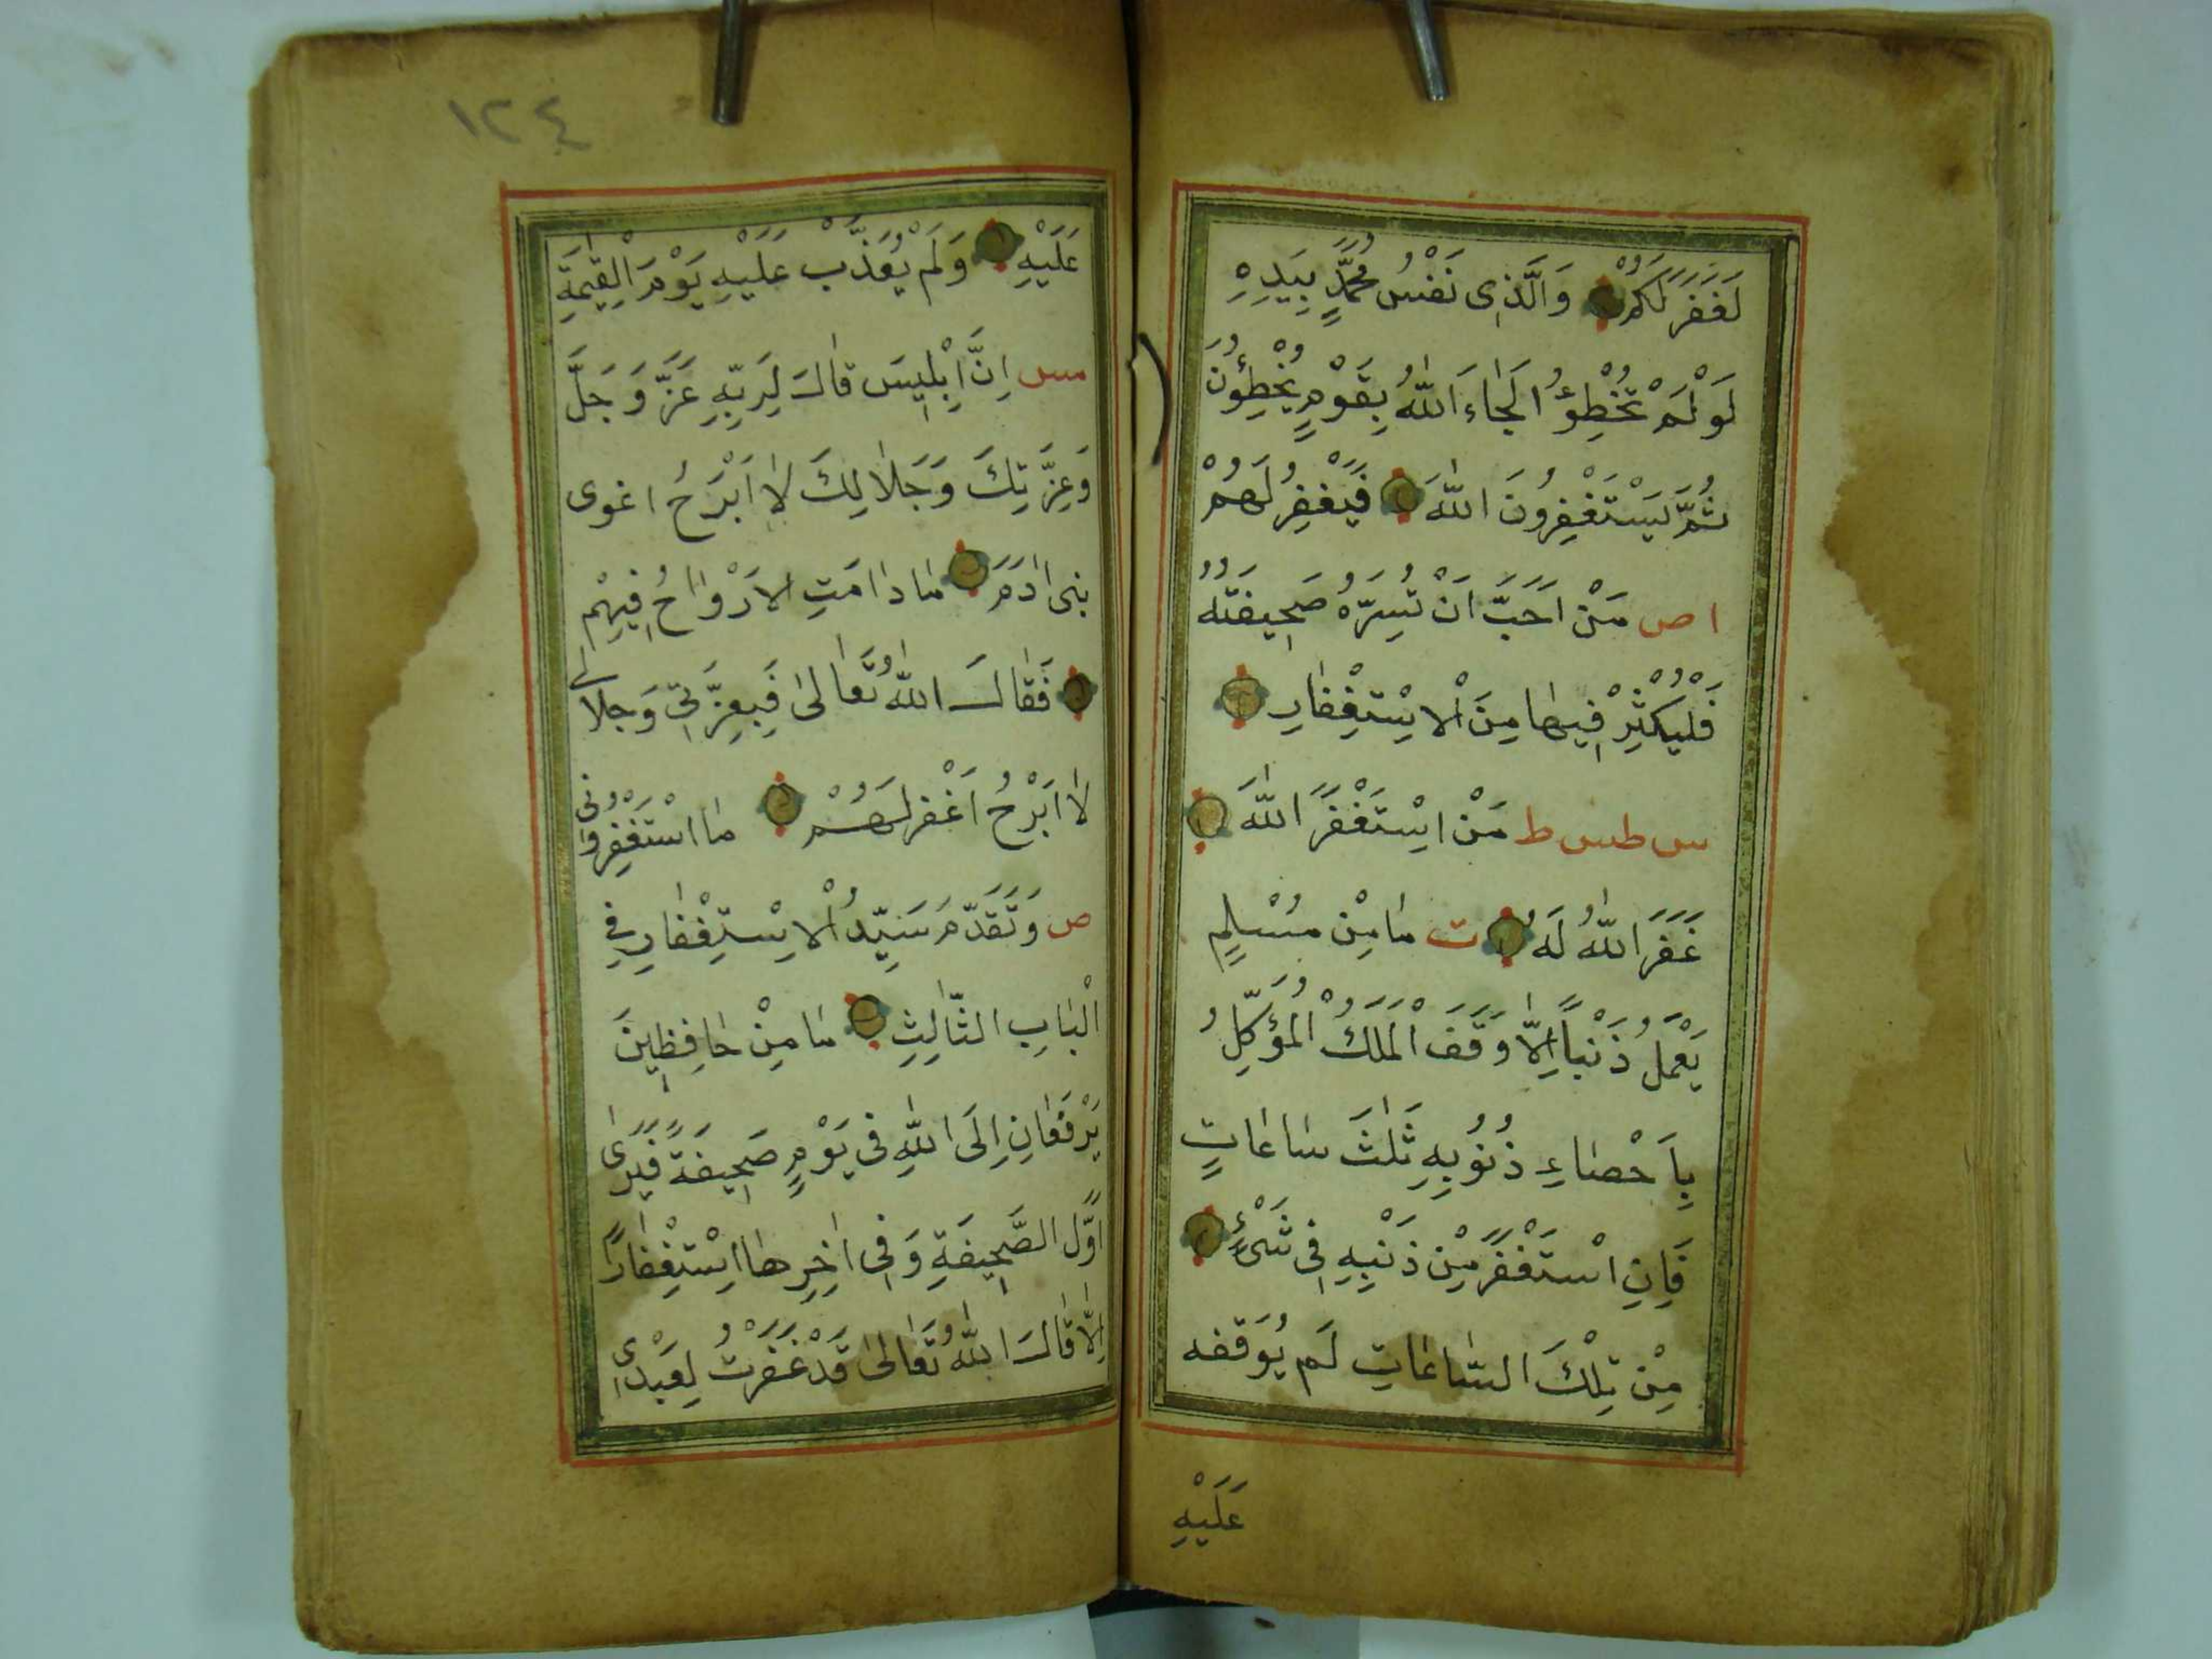 لَغَفَرَ لَكُمْ وَالَّذِى نَفْسُ مُحَمَّدٍ بِيَدِهِ
لَوْ لَمْ تُخْطِؤُا لَجَاءَ اللّٰهُ بِقَوْمٍ يُخْطِؤُنَ
ثُمَّ يَسْتَغْفِرُونَ اللّٰهَ فَيَغْفِرُ لَهُمْ
ا ص مَنْ اَحَبَّ اَنْ تَسِرَّهُ صَحِيفَتُهُ
فَلْيُكْثِرْ فِيهَا مِنَ الْاِسْتِغْفَارِ
س طس ط مَنْ اِسْتَغْفَرَ اللّٰهَ
غَفَرَ اللّٰهُ لَهُ ت مَا مِنْ مُسْلِمٍ
يَعْمَلُ ذَنْبًا اِلَّا وَقَفَ الْمَلَكُ الْمُؤَكِّلُ
بِاَحْصَاءِ ذُنُوبِهِ ثَلٰثَ سَاعَاتٍ
فَاِنِ اسْتَغْفَرَ مِنْ ذَنْبِهِ فِى شَىْءٍ
مِنْ تِلْكَ السَّاعَاتِ لَمْ يُوَقفه
عَلَيْهِ
١٢٤
عَلَيْهِ وَلَمْ يُعَذَّبْ عَلَيْهِ يَوْمَ الْقِيٰمَةِ
مس اِنَّ اِبْلِيسَ قَالَ لِرَبِّهِ عَزَّ وَجَلَّ
وَعِزَّتِكَ وَجَلَالِكَ لَا اَبْرَحُ اغوى
بنى اٰدَمَ مَا دَامَتِ الاَرْوَاحُ فِيهِمْ
فَقَالَ اللّٰهُ تَعَالٰى فَبِعِزَّتِى وَجلالى
لَا اَبْرَحُ اَغْفر لَهُمْ مَا اسْتَغْفَرُوْنى
ص وَتَقَدَّمَ سَيِّدُ الْاِسْتِغْفَارِ فِى
الْبَابِ الثَّالِثِ مَا مِنْ حَافِظِينَ
يَرْفَعَانِ اِلَى اللّٰهِ فى يَوْمٍ صَحِيفَةً فَيَرٰى
اَوَّلَ الصَّحِيفَةِ وَفِى اٰخِرِهَا اِسْتِغْفَارًا
اِلَّا قَالَ اللّٰهُ تَعَالٰى قَدْ غَفَرْتُ لِعَبْدِى